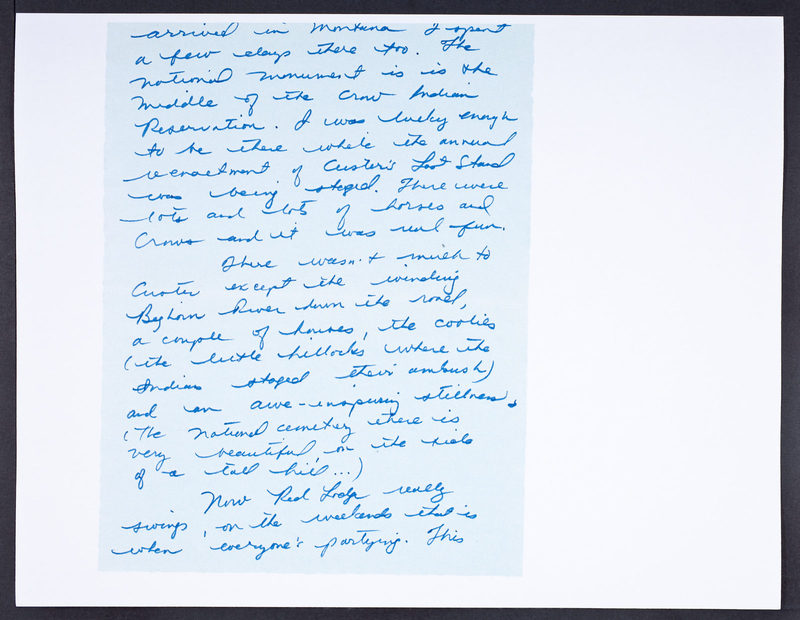 arrived in Montana I spent
a few days there too. The
national monument is is the
middle of the Crow Indian
Reservation. I was lucky enough
to be there while the annual
reenactment of Custer's Last Stand
was being staged. There were
lots and lots of horses and
Crows and it was real fun.
There wasn't much to
Custer except the winding
Big horn River down the road,
a couple of houses, the coolies
(the little hillocks where the
Indians staged their ambush)
and an awe-inspiring stillness.
(The national cemetery there is
very beautiful, on the side
of a tall hill...)
Now Red Lodge really
swings, on the weekends that is
when everyone's partying. This